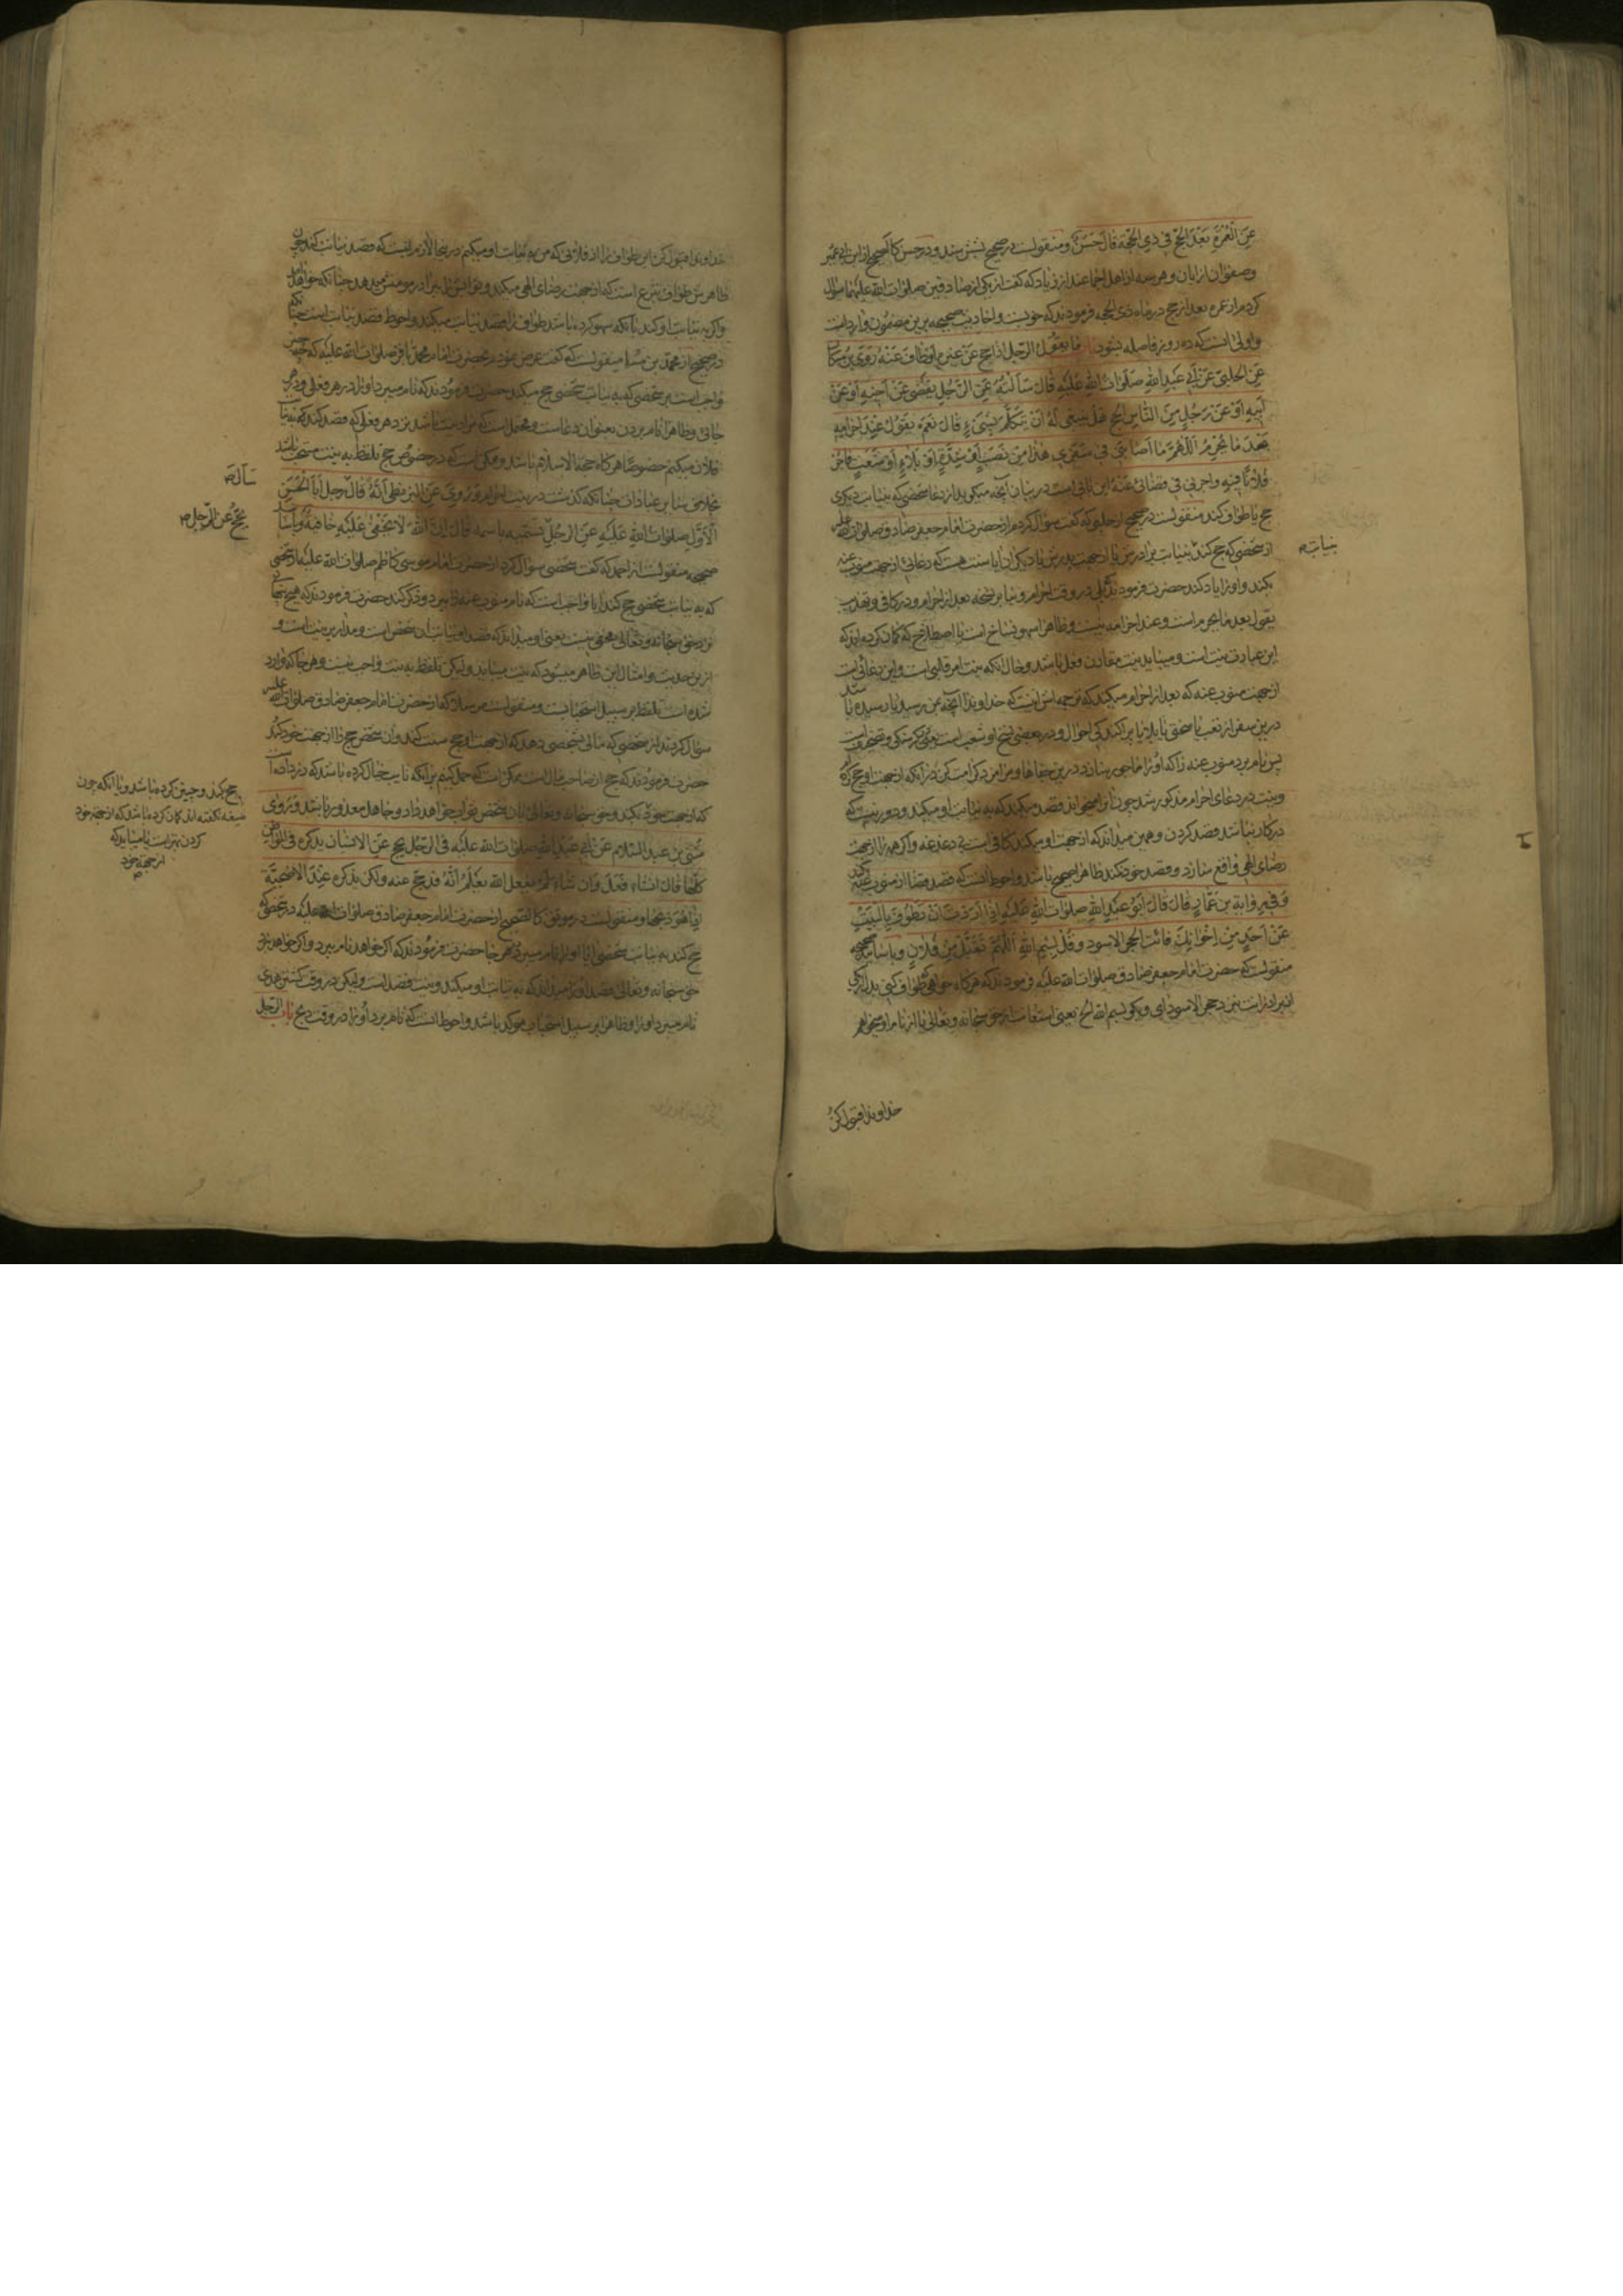 عَنِ الْعُمْرَةِ بَعْدَ الْحَجِّ فِي ذِي الْحِجَّةِ قَالَ حَسَنٌ و منقولست در صحیح بشش سند و در حسن کالصحیح از ابن ابی عمیر
و صفوان از ابان و هر سه از اهل اجماعند از زیاد که گفت از یکی از صادقین صلوات الله علیهما سوال
کردم از عمره بعد از حج در ماه ذی الحجه فرمودند که خوبست و احادیث صحیحه برین مضمون وارد است
و اولی آنست که ده روز فاصله بشود باب ما یقول الرجل اذا حج عن غیره او طاف عنه روی بن مسکان
عَنِ الحلبی عَنْ أَبِي عَبْدِ اللهِ صَلَوَاتُ اللهِ عَلَيْهِ قَالَ سَأَلْتُهُ عَنِ الرَّجُلِ يَقْضِي عَنْ أَخِيهِ أَوْ عَنْ
أَبِيهِ أَوْ عَنْ رَجُلٍ مِنَ النَّاسِ الْحَجَّ هَلْ يَنْبَغِي لَهُ أَنْ يَتَكَلَّمَ بِشَيْءٍ قَالَ نَعَمْ يَقُولُ عِنْدَ إِحْرَامِهِ
بَعْدَ مَا يُحْرِمُ اَللّٰهُمَّ مَا أَصَابَنِي فِي سَفَرِي هٰذَا مِنْ نَصَبٍ أَوْ شِدَّةٍ أَوْ بَلَاءٍ أَوْ شَعَثٍ فَأْجُرْ
فُلَانًا فِيهِ وَاجرنی فی قضائی عَنْهُ این بابی است در بیان آنچه میگوید از دعا شخصی که بنیابت دیگری
حج یا طواف کند منقولست در صحیح از حلبی که گفت سؤال کردم از حضرت امام جعفر صادق صلوات الله علیه
از شخصی که حج کند بنیابت برادرش یا از جهت پدرش یا دیگری آیا سنت هست که دعائی از جهت منوب عنه
بکند و او را یاد کند حضرت فرمودند که بلی در وقت احرام و بنا بر نسخه بعد از احرام و در کافی و تهذیب
یقول بعد ما یحرم است و عند احرامه نیست و ظاهرا سهو نساخ است یا اصطلاح که گمان کرده‌اند که
این عبارت نیت است و میباید نیت مقارن فعل باشد و حال آنکه نیت امر قلبی است و این دعائی است
از جهت منوب عنه که بعد از احرام میکند که ترجمه اش اینست که خداوندا آنچه بمن رسید یا رسیده باشد
درین سفر از تعب یا سختی یا بلا یا پراکندگی احوال و در بعضی نسخ او شعب است یعنی گرسنگی و تصحیف است
پس نام برد منوب عنه را که او را ماجور بساز درین جفاها و مرا مزد کرامت کن در آنکه از جهت او حج کرده
و نیت در دعای احرام مذکور شد چون نایب میخواند قصد میکند که به نیابت او میکند و دور نیست که
در کار نباشد قصد کردن و همین میداند که از جهت او میکند کافی است بی دغدغه و اگر همه را از جهت
رضای الهی واقع سازد و قصد خود نکند ظاهرا صحیح باشد و احوط آنست که قصد قضا از منوب عنه کند
وَ فِي رِوَايَةِ بن عَمَّارٍ قَالَ قَالَ أَبُو عَبْدِ اللهِ صلوات الله عَلَيْهِ إِذَا أَرَدْتَ أَنْ تَطُوفَ بِالْبَيْتِ
عَنْ أَحَدٍ مِنْ إِخْوَانِكَ فَائت الحجر الاسود و قُلْ بِسْمِ اللهِ اَللّٰهُمَّ تَقَبَّلْ مِنْ فُلَانٍ و باسانید صحیحه
منقولست که حضرت امام جعفر صادق صلوات الله علیه فرمودند که هر گاه خواهی که طواف کنی بدل یکی از
برادرانت بنزد حجر الاسود آی و بگو بسم الله الخ یعنی استعانت از حق سبحانه و تعالی یا از نام او میخواهم
خداوندا قبول کن
بنیابت
خداوندا قبول کن این طواف را از فلانی که من به نیابت او میکنم درینجا لازم نیست که قصد نیابت کند چون
ظاهرش طواف تبرع است که از جهت رضای الهی میکند و ثوابش را ببرادر مومنش میدهد چنانکه خواهد آمد
و اگر به نیابت او کند بآنکه سهو کرده باشد طواف را قصد نیابت میکند و احوط قصد نیابت است چنانکه
در صحیح از محمد بن مسلم منقولست که گفت عرض نمودم بحضرت امام محمد باقر صلوات الله علیه که چه چیز
واجب است بر شخصی که به نیابت شخصی حج میکند حضرت فرمودند که نام میبرد او را در هر فعلی و در هر
جائی و ظاهرا نام بردن بعنوان دعاست و محتمل است که مراد نیت باشد نزد هر فعلی که قصد کند که به نیابت
فلان میکنم خصوصا هر گاه حجة الاسلام باشد و ممکن است که در خصوص حج تلفظ به نیت مستحب باشد
و رُوِيَ عَنِ البزنطی أَنَّهُ قَالَ رجل أَبَا الْحَسَنِ
الْأَوَّلَ صلوات اللهِ عَلَيْهِ عَنِ الرجل یسمیه باسمه قَالَ ان اللهَ لَا تَخْفَى عَلَيْهِ خَافِيَةٌ و باسانید
صحیحه منقولست از احمد که گفت شخصی سؤال کرد از حضرت امام موسی کاظم صلوات الله علیه از شخصی
که به نیابت شخصی حج کند آیا واجب است که نام منوب عنه را ببرد و ذکر کند حضرت فرمودند که هیچ پنهانی
نزد حق سبحانه و تعالی مخفی نیست یعنی او میداند که قصد او نیابت آن شخص است و مدار بر نیت است و
ازین حدیث و امثال این ظاهر میشود که نیت میباید و لیکن تلفظ به نیت واجب نیست و هر جا که وارد
شده است تلفظ بر سبیل استحبابست و منقولست مرسلا که از حضرت امام جعفر صادق صلوات الله علیه
سؤال کردند از شخصی که مالی بشخصی دهد که از جهت او حج سنت کند و آن شخص حج را از جهت خود کند
حضرت فرمودند که حج از صاحب مال است ممکن است که حمل کنیم بر آنکه نایب خیال کرده باشد که زر داده است
که از جهت خود بکند و حق سبحانه و تعالی بآن شخص ثواب خواهد داد و جاهل معذور باشد و رَوَى
مُثَنّى بن عبد السلام عَنْ أَبِي عَبْدِ اللهِ صلوات الله علیه فی الرَّجُلِ یحج عَنِ الانسان یذکره فی المواطن
كُلِّهَا قَالَ ان شاء فَعَلَ وَ ان شاء لم یفعل الله يَعْلَمُ أَنَّهُ قد حج عنه ولکن یذکره عِنْدَ الْأُضْحِيَّةِ
إِذَا هُوَ ذبحها و منقولست در موثق کالصحیح از حضرت امام جعفر صادق صلوات الله علیه در شخصی که
حج کند به نیابت شخصی آیا او را نام میبرد در همه جا حضرت فرمودند که اگر خواهد نام ببرد و اگر خواهد نبرد
حق سبحانه و تعالی قصد او را میداند که به نیابت او میکند و نیت قصد است ولیکن در وقت کشتن هدی
نام میبرد او را و ظاهرا بر سبیل استحباب موکد باشد و احوط آنست که نام برد او را در وقت ذبح باب الرجل
سَأَلَ
یحج عن الرجل
حج بکند و چنین کرده باشد و یا آنکه چون
صیغه نگفته اند گمان کرده باشد که از جهة خود
کردن بهتر است یا میباید که
از جهة خود